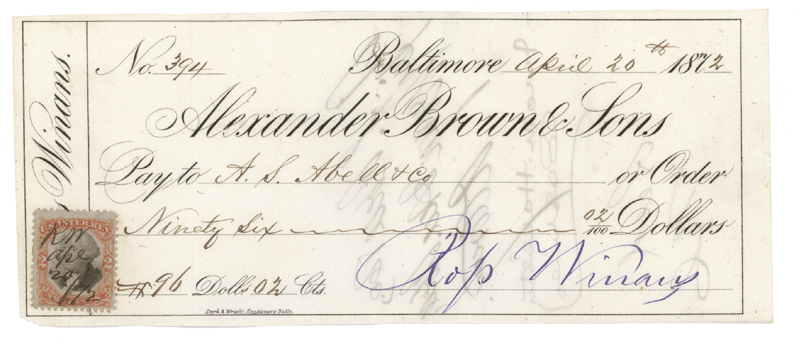 Winans.
No. 394 Baltimore April 20th 1872
Alexander Brown & Sons
Pay to A. S. Abell & Co or Order
Ninety Six 02/100 Dollars
$96 Dolls 02 Cts.
Ross Winans
U.S. INTER. REV.
RW
Apl
20
/72